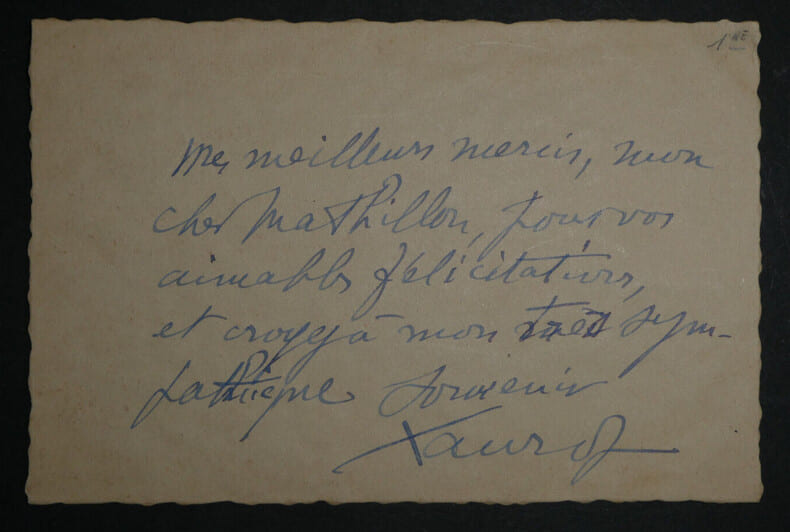 1 NE
Mes meilleurs mercis, mon
cher Mathillon, pour vos
aimables félicitations,
et croyez à mon très sym-
pathique souvenir
Xanrof